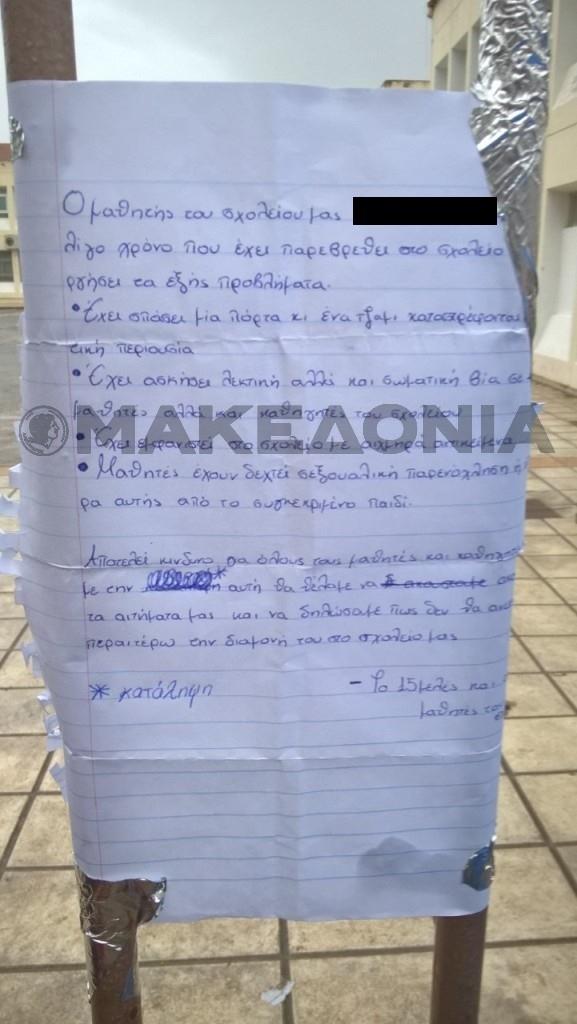 Ο μαθητής του σχολείου μας
λίγο χρόνο που έχει παρεβρεθεί στο σχολείο
ργήσει τα εξής προβλήματα.
• Έχει σπάσει μία πόρτα κι ένα τζαμι καταστρέφοντα
τική περιουσία
• Έχει ασκήσει λεκτική αλλά και σωματική βία σε
μαθητές αλλά και καθηγητές του σχολείου
ΜΑΚΕΔΟΝΙΑ
• Έχει εμφανιστεί στο σχολείο με αιχμηρά αντικείμενα
• Μαθητές έχουν δεχτεί σεξουαλική παρενόχληση ή
ρα αυτής από το συγκεκριμένο παιδί.
Αποτελεί κίνδυνο για όλους τους μαθητές και καθηγη
με την * αυτή θα θέλαμε να
τα αιτήματα μας και να δηλώσαμε πως δεν θα ανε
περαιτέρω την διαμονή του στο σχολείο μας
* κατάληψη
– Το 15μελές και
μαθητές το